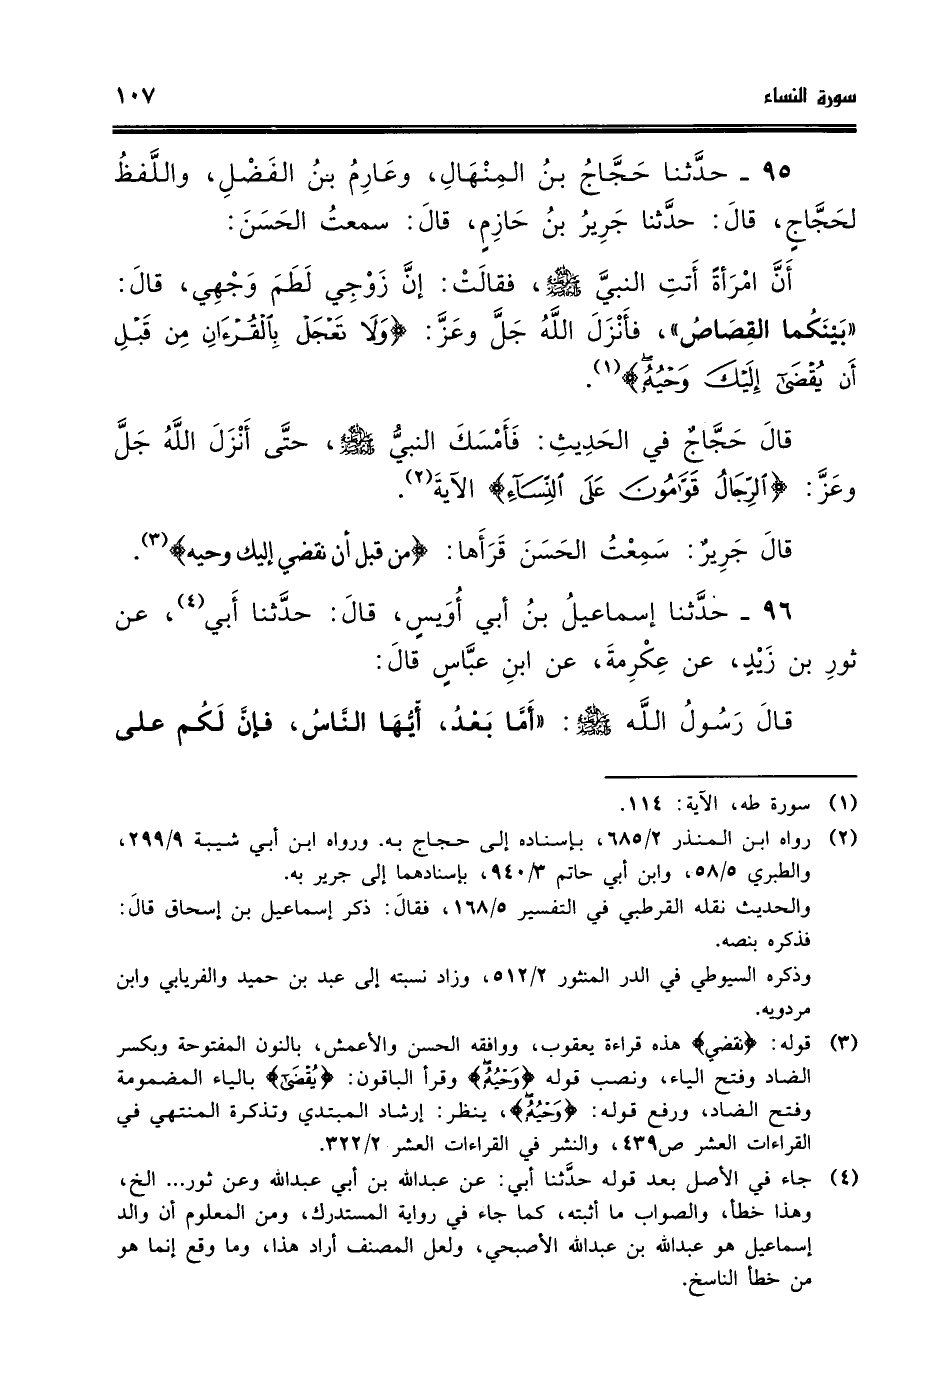 سورة النساء ١٠٧
٩٥ ـ حدَّثنا حَجَّاجُ بنُ المِنْهَالِ، وعَارِمُ بنُ الفَضْلِ، واللَّفظُ
لحَجَّاجٍ، قالَ: حدَّثنا جَرِيرُ بنُ حَازِمٍ، قالَ: سمعتُ الحَسَنَ:
أَنَّ امْرَأةً أَتتِ النبيَّ ﷺ، فقالَتْ: إنَّ زَوْجِي لَطَمَ وَجْهِي، قالَ:
«بَيْنَكُما القِصَاصُ»، فأَنْزَلَ اللَّهُ جَلَّ وعَزَّ: ﴿وَلَا تَعْجَلْ بِٱلْقُرْءَانِ مِن قَبْلِ
أَن يُقْضَىٰٓ إِلَيْكَ وَحْيُهُۥ﴾(١).
قالَ حَجَّاجٌ في الحَدِيثِ: فَأَمْسَكَ النبيُّ ﷺ، حتَّى أَنْزَلَ اللَّهُ جَلَّ
وعَزَّ: ﴿ٱلرِّجَالُ قَوَّٰمُونَ عَلَى ٱلنِّسَآءِ﴾ الآيةَ(٢).
قالَ جَرِيرٌ: سَمِعْتُ الحَسَنَ قَرَأَها: ﴿من قبل أن نقضي إليك وحيه﴾(٣).
٩٦ ـ حدَّثنا إسماعيلُ بنُ أبي أُوَيسٍ، قالَ: حدَّثنا أَبي(٤)، عن
ثورِ بن زَيْدٍ، عن عِكْرِمةَ، عن ابنِ عبَّاسٍ قالَ:
قالَ رَسُولُ اللَّه ﷺ: «أَمَّا بَعْدُ، أَيُّهَا النَّاسُ، فإنَّ لَكُم على
(١) سورة طه، الآية: ١١٤.
(٢) رواه ابن المنذر ٦٨٥/٢، بإسناده إلى حجاج به. ورواه ابن أبي شيبة ٢٩٩/٩،
والطبري ٥٨/٥، وابن أبي حاتم ٩٤٠/٣، بإسنادهما إلى جرير به.
والحديث نقله القرطبي في التفسير ١٦٨/٥، فقال: ذكر إسماعيل بن إسحاق قال:
فذكره بنصه.
وذكره السيوطي في الدر المنثور ٥١٢/٢، وزاد نسبته إلى عبد بن حميد والفريابي وابن
مردويه.
(٣) قوله: ﴿نقضي﴾ هذه قراءة يعقوب، ووافقه الحسن والأعمش، بالنون المفتوحة وبكسر
الضاد وفتح الياء، ونصب قوله ﴿وَحْيُهُۥ﴾ وقرأ الباقون: ﴿يُقْضَىٰٓ﴾ بالياء المضمومة
وفتح الضاد، ورفع قوله: ﴿وَحْيُهُۥ﴾، ينظر: إرشاد المبتدي وتذكرة المنتهي في
القراءات العشر ص٤٣٩، والنشر في القراءات العشر ٣٢٢/٢.
(٤) جاء في الأصل بعد قوله حدَّثنا أبي: عن عبدالله بن أبي عبدالله وعن ثور... الخ،
وهذا خطأ، والصواب ما أثبته، كما جاء في رواية المستدرك، ومن المعلوم أن والد
إسماعيل هو عبدالله بن عبدالله الأصبحي، ولعل المصنف أراد هذا، وما وقع إنما هو
من خطأ الناسخ.